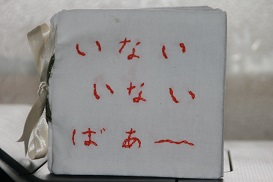 いない
いない
ばあ〜